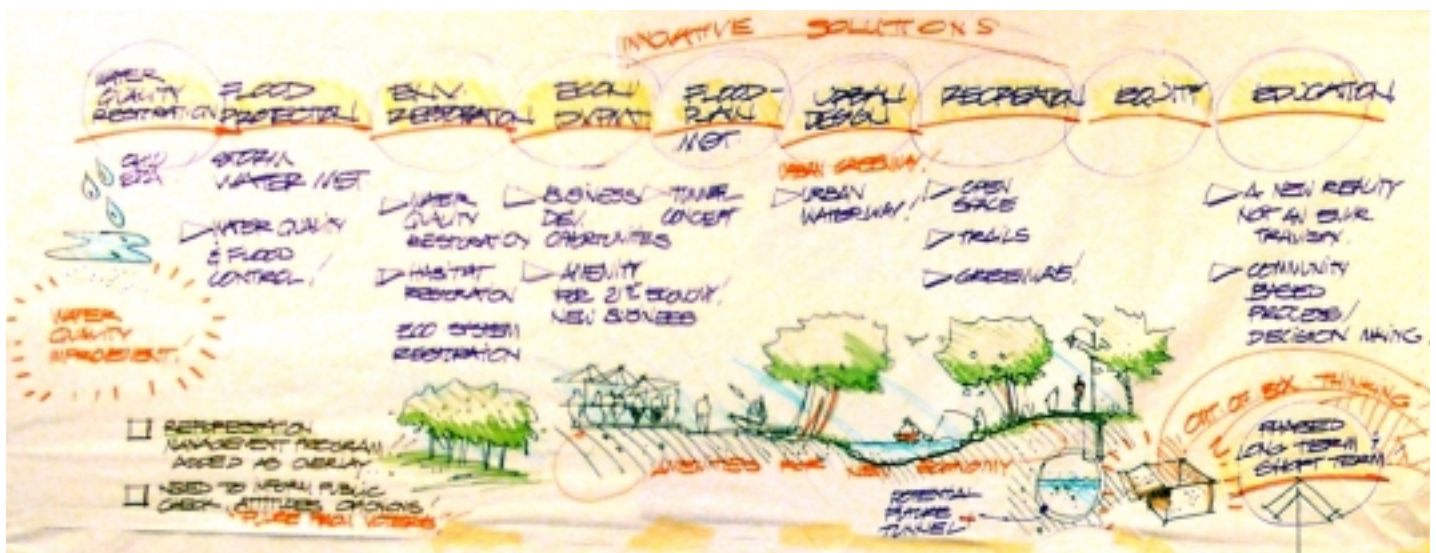 INNOVATIVE SOLUTIONS
WATER
QUALITY
RESTORATION
FLOOD
PROTECTION
ENV.
RESTORATION
ECON/
FLOOD-
PLAIN
MGT
URBAN
DESIGN
RECREATION
EQUITY
EDUCATION
EPA
STORM
WATER MGT
WATER QUALITY
& FLOOD
CONTROL!
WATER
QUALITY
IMPROVEMENT!
WATER
QUALITY
RESTORATION
HABITAT
RESTORATION
ECO SYSTEM
RESTORATION
BUSINESS
DEV.
OPORTUNITIES
AMENITY
FOR 21st ECONOMY/
NEW BUSINESS
TUNNEL
CONCEPT
URBAN GREENWAY!
URBAN
WATERWAY!
OPEN
SPACE
TRAILS
GREENWAYS!
A NEW REALITY
NOT AN
COMMUNITY
BASED
PROCESS/
DECISION MAKING
REFORESTATION
MANAGEMENT PROGRAM
ADDED AS OVERLAY
NEED TO INFORM PUBLIC
CHECK ATTITUDES OPINIONS
FROM VOTERS
AMENITIES FOR NEW ECONOMY
POTENTIAL
FUTURE
TUNNEL
OUT OF BOX THINKING
PHASED
LONG TERM &
SHORT TERM